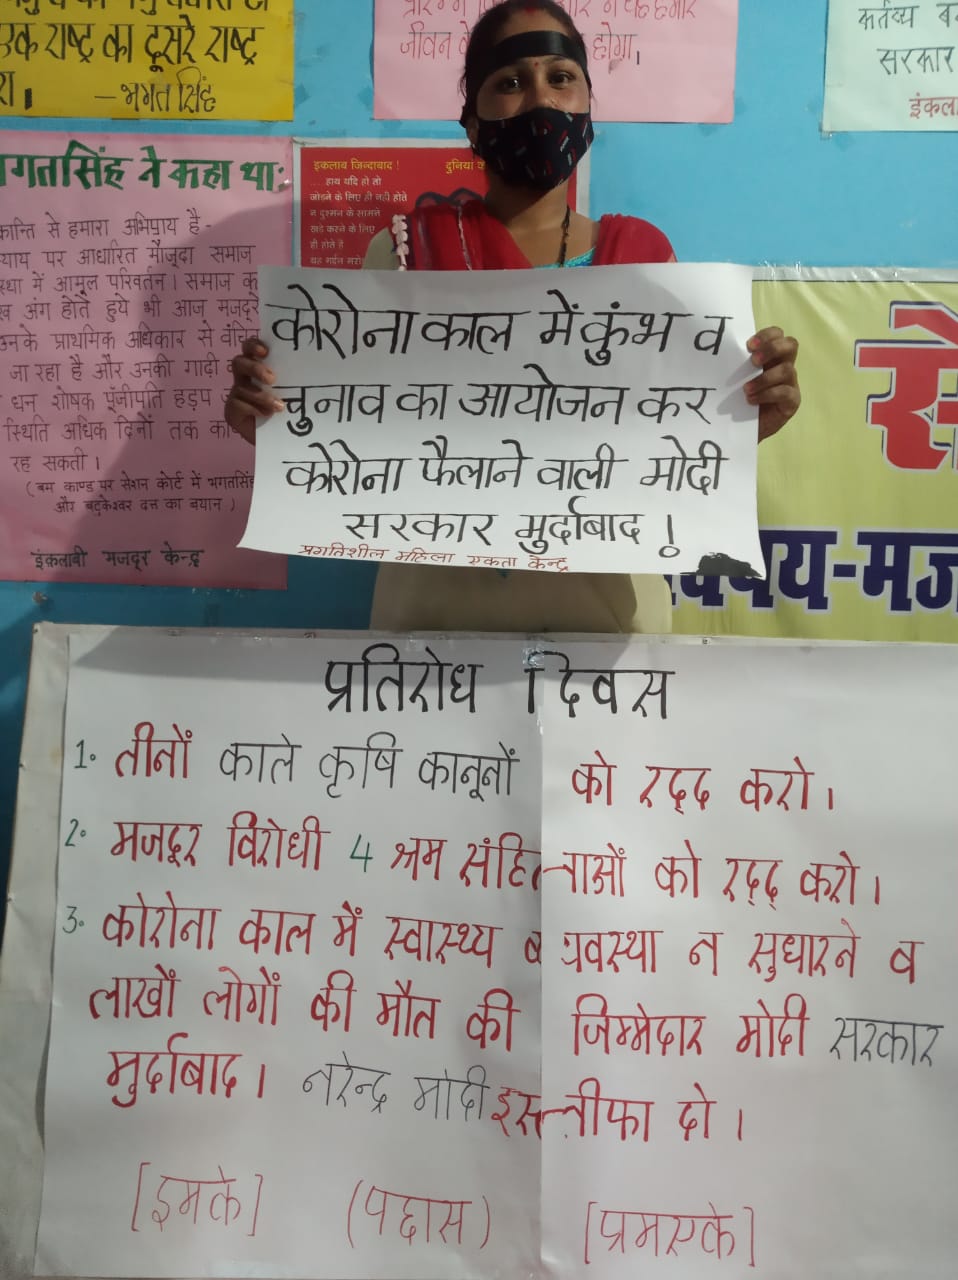 एक राष्ट्र का दूसरे राष्ट्र
- भगत सिंह
जीवन
होगा।
सरकार
भगतसिंह ने कहा था:
क्रान्ति से हमारा अभिप्राय है -
न्याय पर आधारित मौजूदा समाज
व्यवस्था में आमूल परिवर्तन। समाज का
अंग होते हुये भी आज मजदूरों
उनके प्राथमिक अधिकार से वंचित
जा रहा है और उनकी गाढ़ी
धन शोषक पूंजीपति हड़प
स्थिति अधिक दिनों तक
रह सकती।
(बम काण्ड पर सेशन कोर्ट में भगतसिंह
और बटुकेश्वर दत्त का बयान)
इंकलाबी मजदूर केन्द्र
इंकलाब जिन्दाबाद!
... हाथ यदि हो तो
जोड़ने के लिए ही नहीं होते
न दुश्मन के सामने
खड़े करने के लिए
ही होते हैं
कोरोना काल में कुंभ व
चुनाव का आयोजन कर
कोरोना फैलाने वाली मोदी
सरकार मुर्दाबाद!
प्रगतिशील महिला एकता केन्द्र
प्रतिरोध दिवस
1. तीनों काले कृषि कानूनों को रद्द करो।
2. मजदूर विरोधी 4 श्रम संहिताओं को रद्द करो।
3. कोरोना काल में स्वास्थ्य व्यवस्था न सुधारने व
लाखों लोगों की मौत की जिम्मेदार मोदी सरकार
मुर्दाबाद। नरेन्द्र मोदी इस्तीफा दो।
[इमके] (पछास) [प्रमएके]